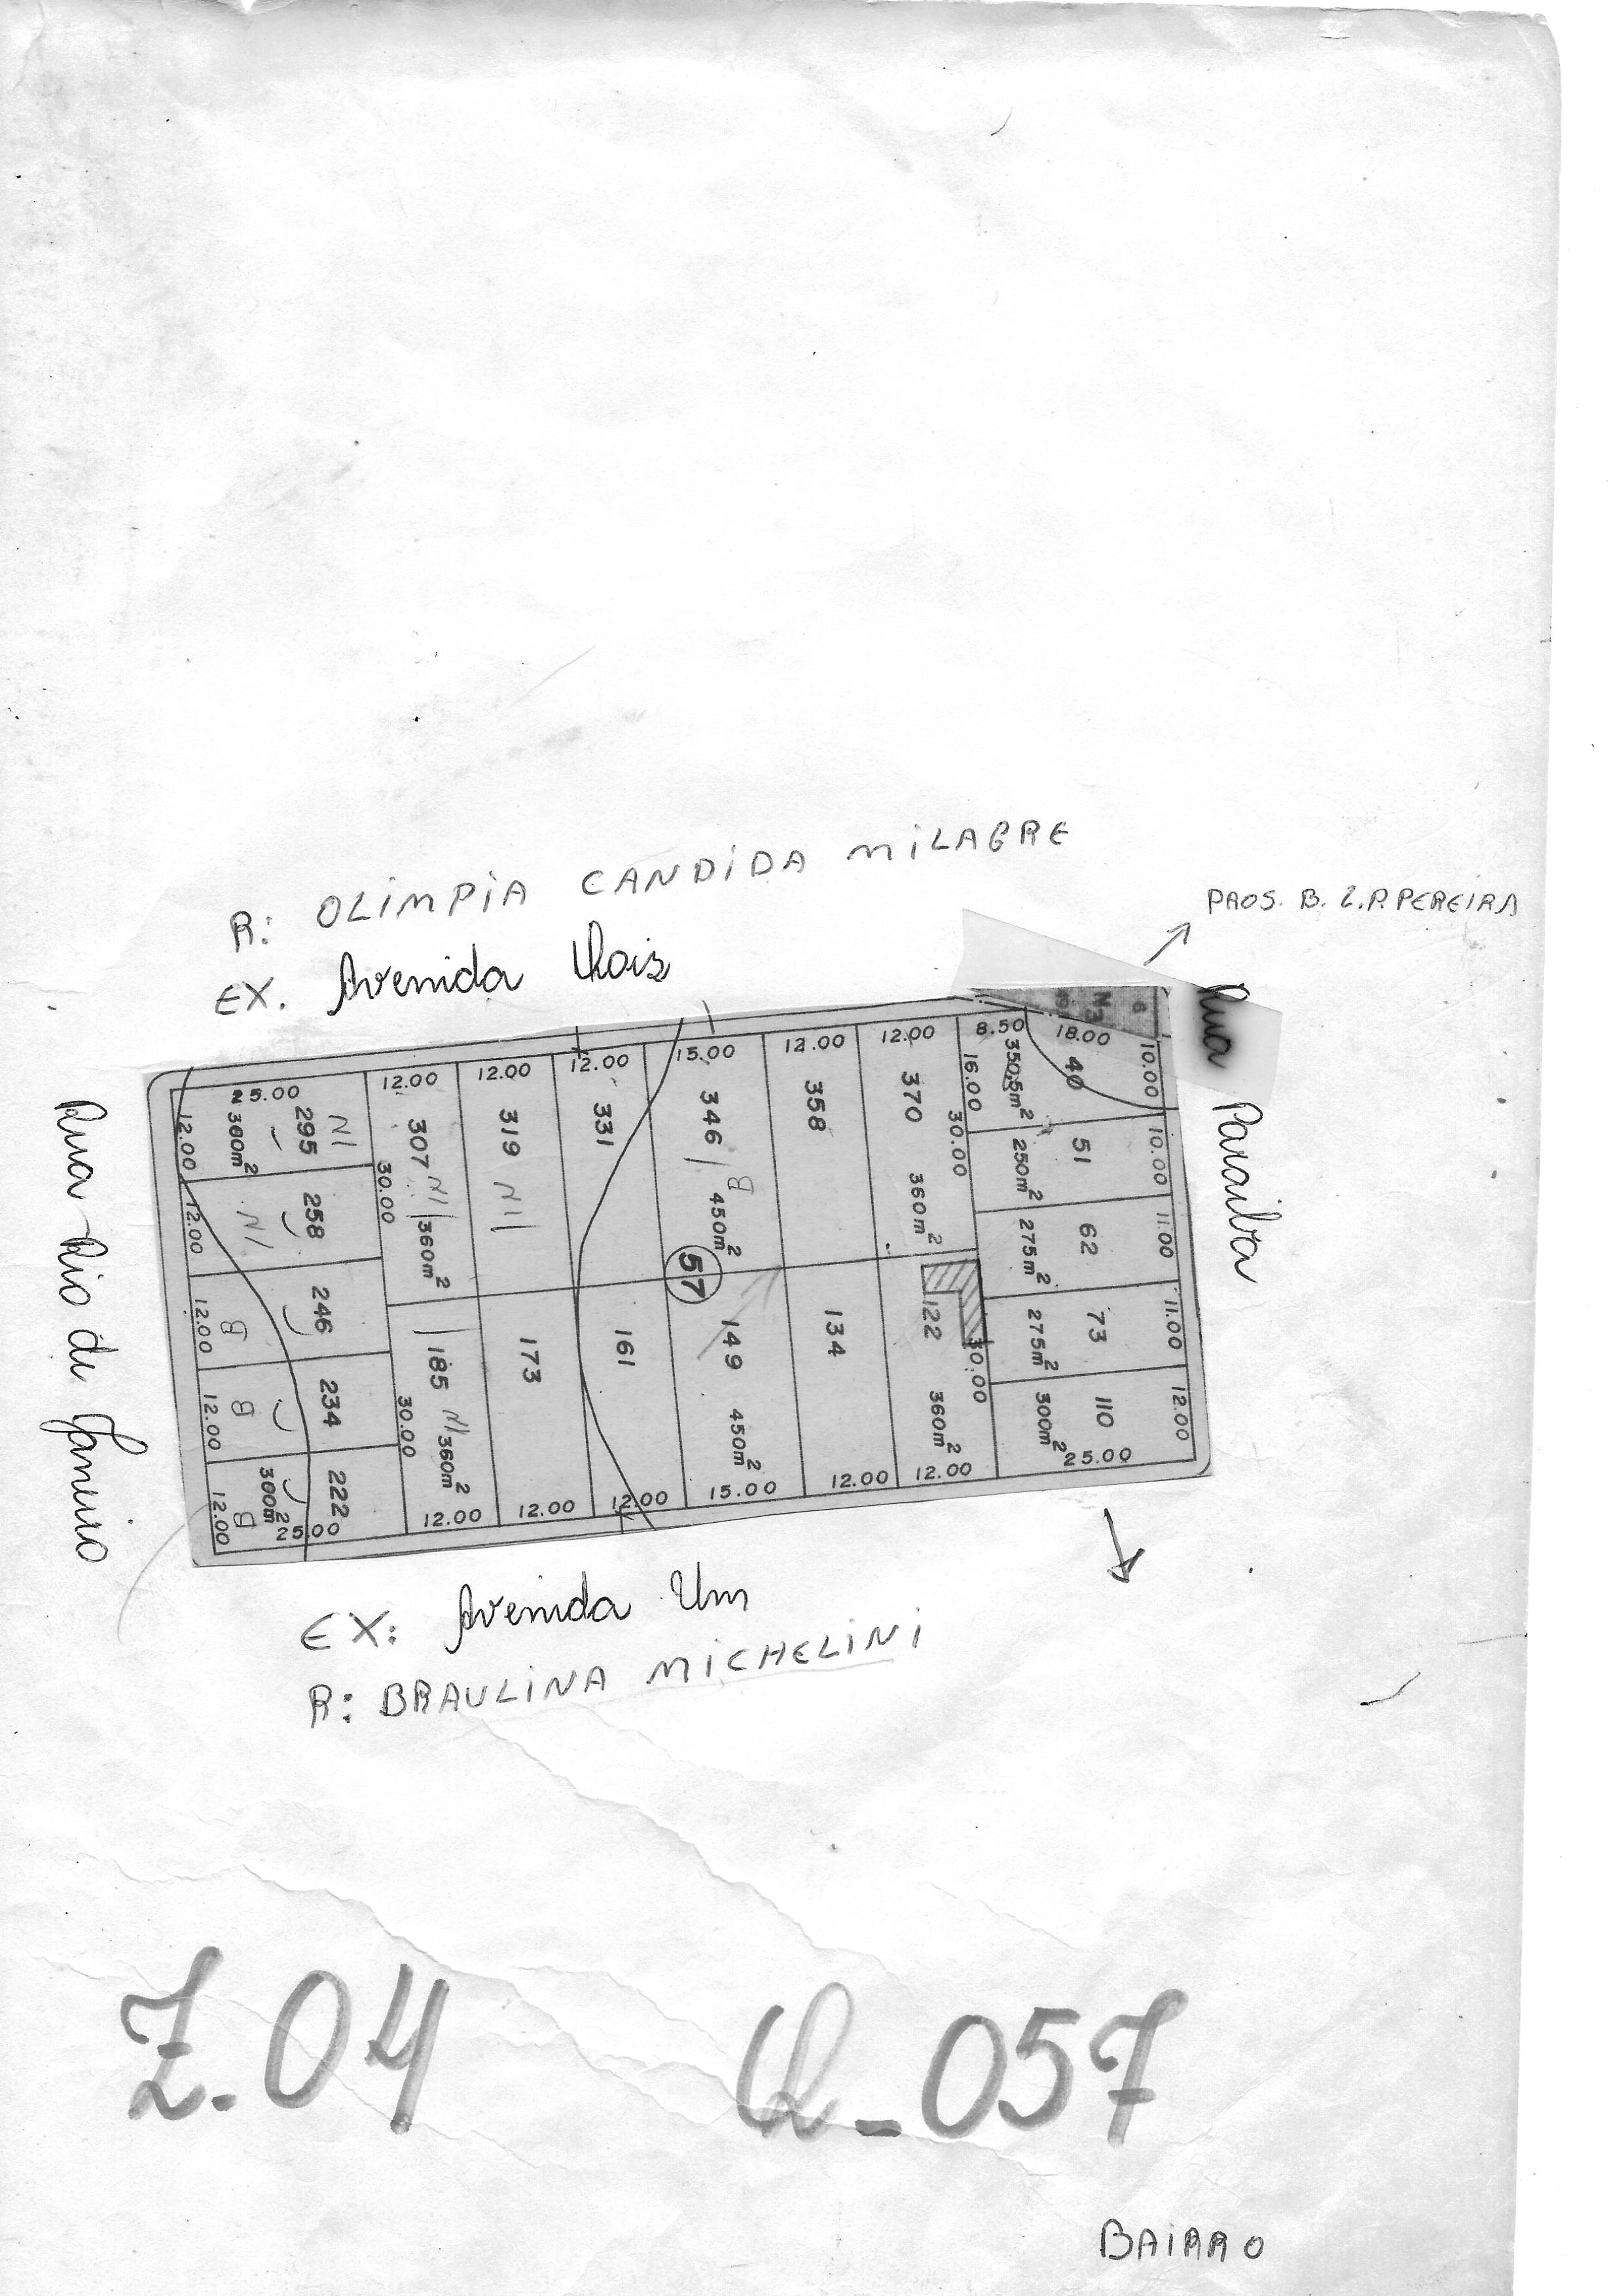 R: OLIMPIA CANDIDA MILAGRE
PROS. B. L.P. PEREIRA
EX. Avenida Dois
Rua Paraiba
Rua Rio de Janeiro
25.00
12.00
12.00
12.00
15.00
12.00
12.00
8.50
18.00
10.00
40
350,5m²
16.00
30.00
10.00
51
250m²
11.00
62
275m²
11.00
73
275m²
12.00
110
300m²
25.00
12.00
295
NI
300m²
12.00
258
NI
12.00
246
B
12.00
234
B
12.00
222
300m²
B
25.00
307 NI
360m²
30.00
319 NI
331
346
B
450m²
358
370
360m²
57
185 NI
360m²
30.00
173
161
149
450m²
134
122
360m²
30.00
12.00
12.00
12.00
15.00
12.00
12.00
EX: Avenida Um
R: BRAULINA MICHELINI
Z.04 Q-057
BAIRRO